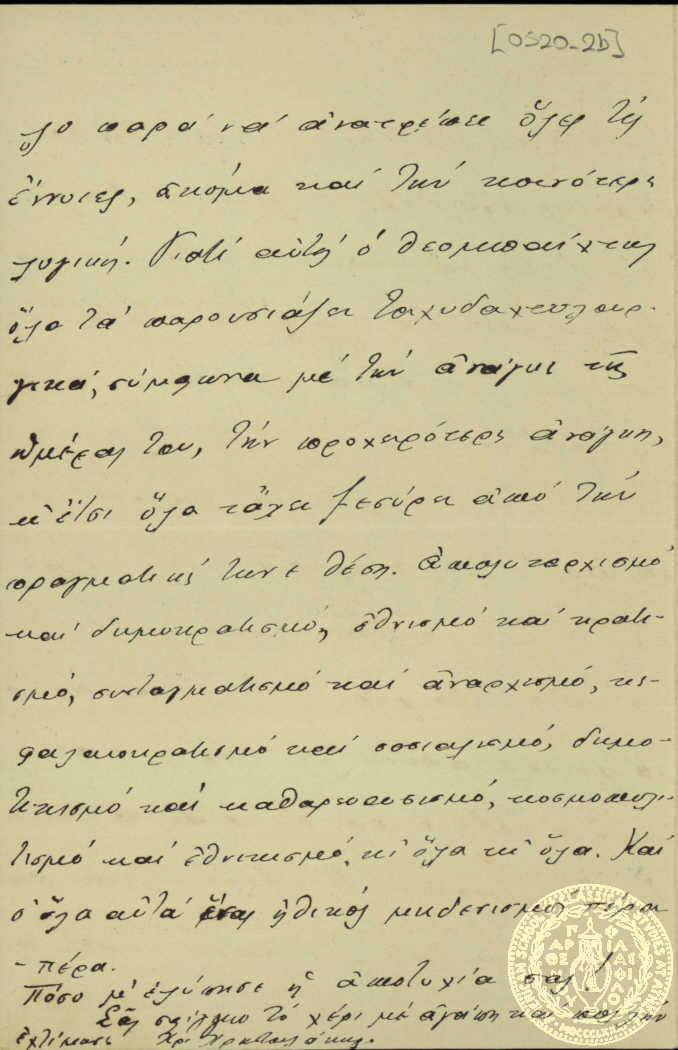 [0S20-2b]
λο παρά νά ἀνατρέπει ὅλες τίς
ἔννοιες, ἀκόμα καί τήν κοινότερη
λογική. Γιατί αὐτός ὁ θεομπαίχτης
ὅλα τά παρουσιάζει ταχυδαχτυλουρ-
γικά, σύμφωνα μέ τήν ἀνάγκη τῆς
ἡμέρας του, τήν προχειρότερη ἀνάγκη,
κ' ἔτσι ὅλα τἄχει ξεσύρει ἀπό τήν
πραγματική τους θέση. Ἀπολυταρχισμό
καί δημοκρατισμό, ἐθνισμό καί κρατι-
σμό, συνταγματισμό καί ἀναρχισμό, κε-
φαλαιοκρατισμό καί σοσιαλισμό, δημο-
τικισμό καί καθαρευουσισμό, κοσμοπολι-
τισμό καί ἐθνικισμό, κι ὅλα κι ὅλα. Καί
σ' ὅλα αὐτά ἕνας ἠθικός μηδενισμός πέρα
-πέρα.
Πόσο μ' ἐλύπησε ἡ ἀποτυχία σας!
Σᾶς σφίγγω τό χέρι μέ ἀγάπη καί πολλήν
ἐχτίμηση